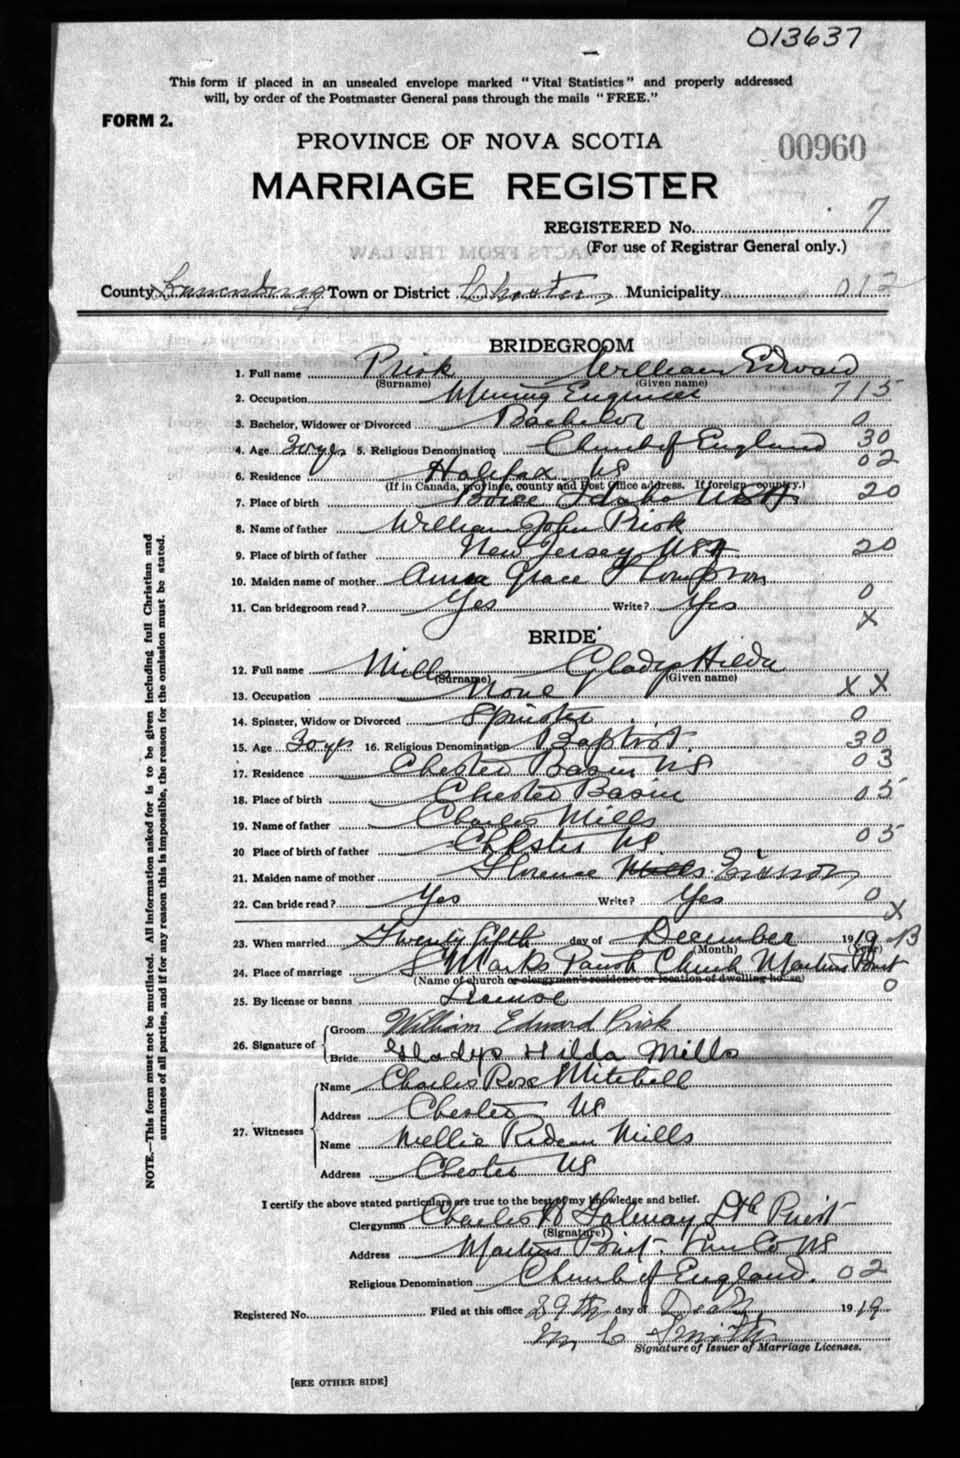 013637
This form if placed in an unsealed envelope marked "Vital Statistics" and properly addressed
will, by order of the Postmaster General pass through the mails "FREE."
FORM 2.
PROVINCE OF NOVA SCOTIA
00960
MARRIAGE REGISTER
REGISTERED No. 7
(For use of Registrar General only.)
County Lunenburg Town or District Chester Municipality 012
BRIDEGROOM
1. Full name Prisk William Edward
(Surname) (Given name)
2. Occupation Mining Engineer 715
3. Bachelor, Widower or Divorced Bachelor 0
4. Age 30 yrs 5. Religious Denomination Church of England 30
6. Residence Halifax NS 02
(If in Canada, province, county and Post Office address. If foreign country.)
7. Place of birth Boise Idaho USA 20
8. Name of father William John Prisk
9. Place of birth of father New Jersey USA 20
10. Maiden name of mother Anna Grace Thompson
11. Can bridegroom read? Yes Write? Yes 0
X
BRIDE
12. Full name Mills Gladys Hilda
(Surname) (Given name)
13. Occupation None X X
14. Spinster, Widow or Divorced Spinster 0
15. Age 30 yrs 16. Religious Denomination Baptist. 30
17. Residence Chester Basin NS 03
18. Place of birth Chester Basin 05
19. Name of father Charles Mills
20 Place of birth of father Chester NS. 05
21. Maiden name of mother Florence Mills
22. Can bride read? Yes Write? Yes 0
X
23. When married Twenty fifth day of December 1919 B
(Month) (Year)
24. Place of marriage S Marks Parish Church Martins Point
(Name of church or clergyman's residence or location of dwelling house) 0
25. By license or banns License
26. Signature of Groom William Edward Prisk
Bride Gladys Hilda Mills
27. Witnesses Name Charles Rose Mitchell
Address Chester NS
Name Nellie Mills
Address Chester NS
I certify the above stated particulars are true to the best of my knowledge and belief.
Clergyman Charles Priest
(Signature)
Address Martins Point. Lun Co NS
Religious Denomination Church of England. 02
Registered No. Filed at this office 29th day of Dec 1919
M C Smith
Signature of Issuer of Marriage Licenses.
[SEE OTHER SIDE]
NOTE.—This form must not be mutilated. All information asked for is to be given including full Christian and
surnames of all parties, and if for any reason this is impossible, the reason for the omission must be stated.